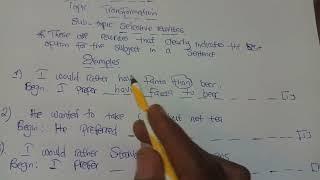 Topic Transformation
Sub-topic Selective rewrites
* These are rewrites that clearly indicates the best
option for the subject in a sentence
Examples
1) I would rather have Fanta than beer.
Begin: I prefer having Fanta to beer
2) He wanted to take but not tea
Begin: He preferred
3) I would rather
Begin: I prefer